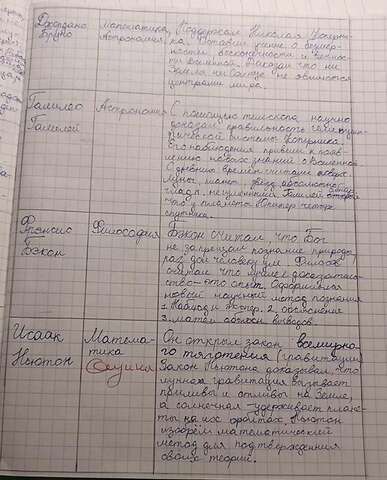 Джордано
Бруно
математика,
Астрономия
Поддержал Николая Коперни-
ка. Оставил учение о безмер-
ности, бесконечности и вечнос-
ти Вселенной. Доказал что ни
Земля ни Солнце не являются
центрами мира.
Галилео
Галилей
Астрономия
С помощью телескопа научно
доказал правильность
системы Коперника.
Его наблюдения привели к появ-
лению новых знаний о Вселенной
С древних времён считали
Галилей
что у планеты Юпитер четыре
спутника.
Фрэнсис
Бэкон
Философия
Бэкон считал, что Бог
не запрещал познание природы,
раз дал человеку ум. Философ
считал что лучшее доказательс-
тво - это опыт.
новый научный метод познания
1. Наблюд и экспер. 2. объяснение
3. выводов
Исаак
Ньютон
Матема-
тика
Физика
Он открыл закон всемирно-
го тяготения (гравитации)
Закон Ньютона доказывал, что
лунная гравитация вызывает
приливы и отливы на Земле,
а солнечная - удерживает плане-
ты на их орбитах. Ньютон
изобрёл математический
метод для подтверждения
своих теорий.